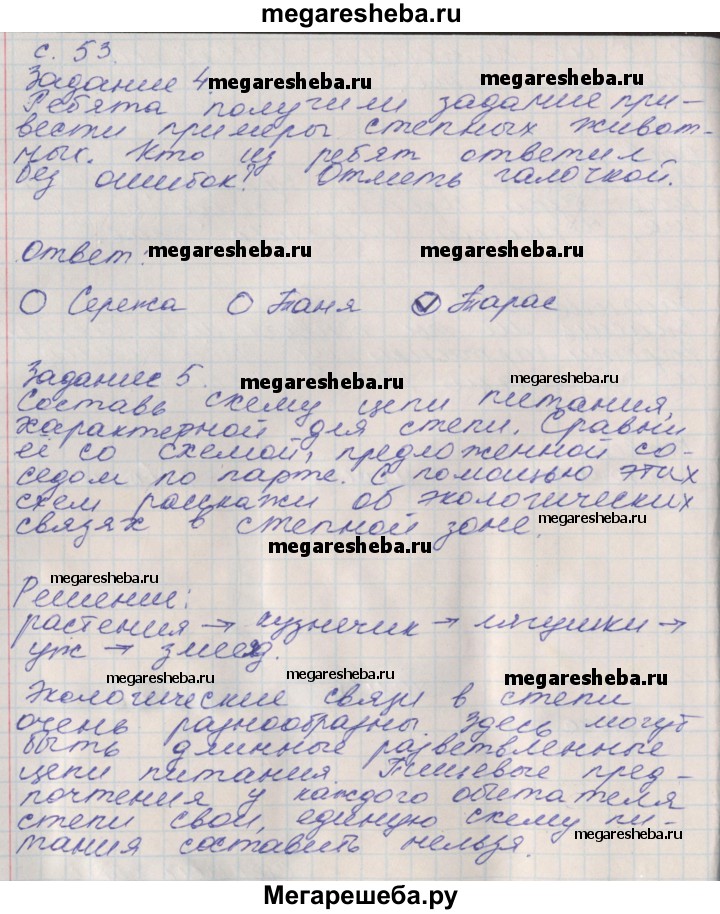 megaresheba.ru
с. 53.
Задание 4 megaresheba.ru megaresheba.ru
Ребята получили задание при-
вести примеры степных живот-
ных. Кто из ребят ответил
без ошибок? Отметь галочкой.
Ответ: megaresheba.ru megaresheba.ru
Сережа Таня Тарас
Задание 5. megaresheba.ru megaresheba.ru
Составь схему цепи питания,
характерной для степи. Сравни
её со схемой, предложенной со-
седом по парте. С помощью этих
схем расскажи об экологических
связях в степной зоне. megaresheba.ru
megaresheba.ru
megaresheba.ru
Решение:
растения → кузнечик → лягушки →
уж → змееяд.
megaresheba.ru megaresheba.ru megaresheba.ru
Экологические связи в степи
очень разнообразны. Здесь могут
быть длинные разветвленные
цепи питания. Пищевые пред-
почтения у каждого обитателя
степи свои, единую схему пи-
тания составить нельзя. megaresheba.ru
Мегарешеба.ру